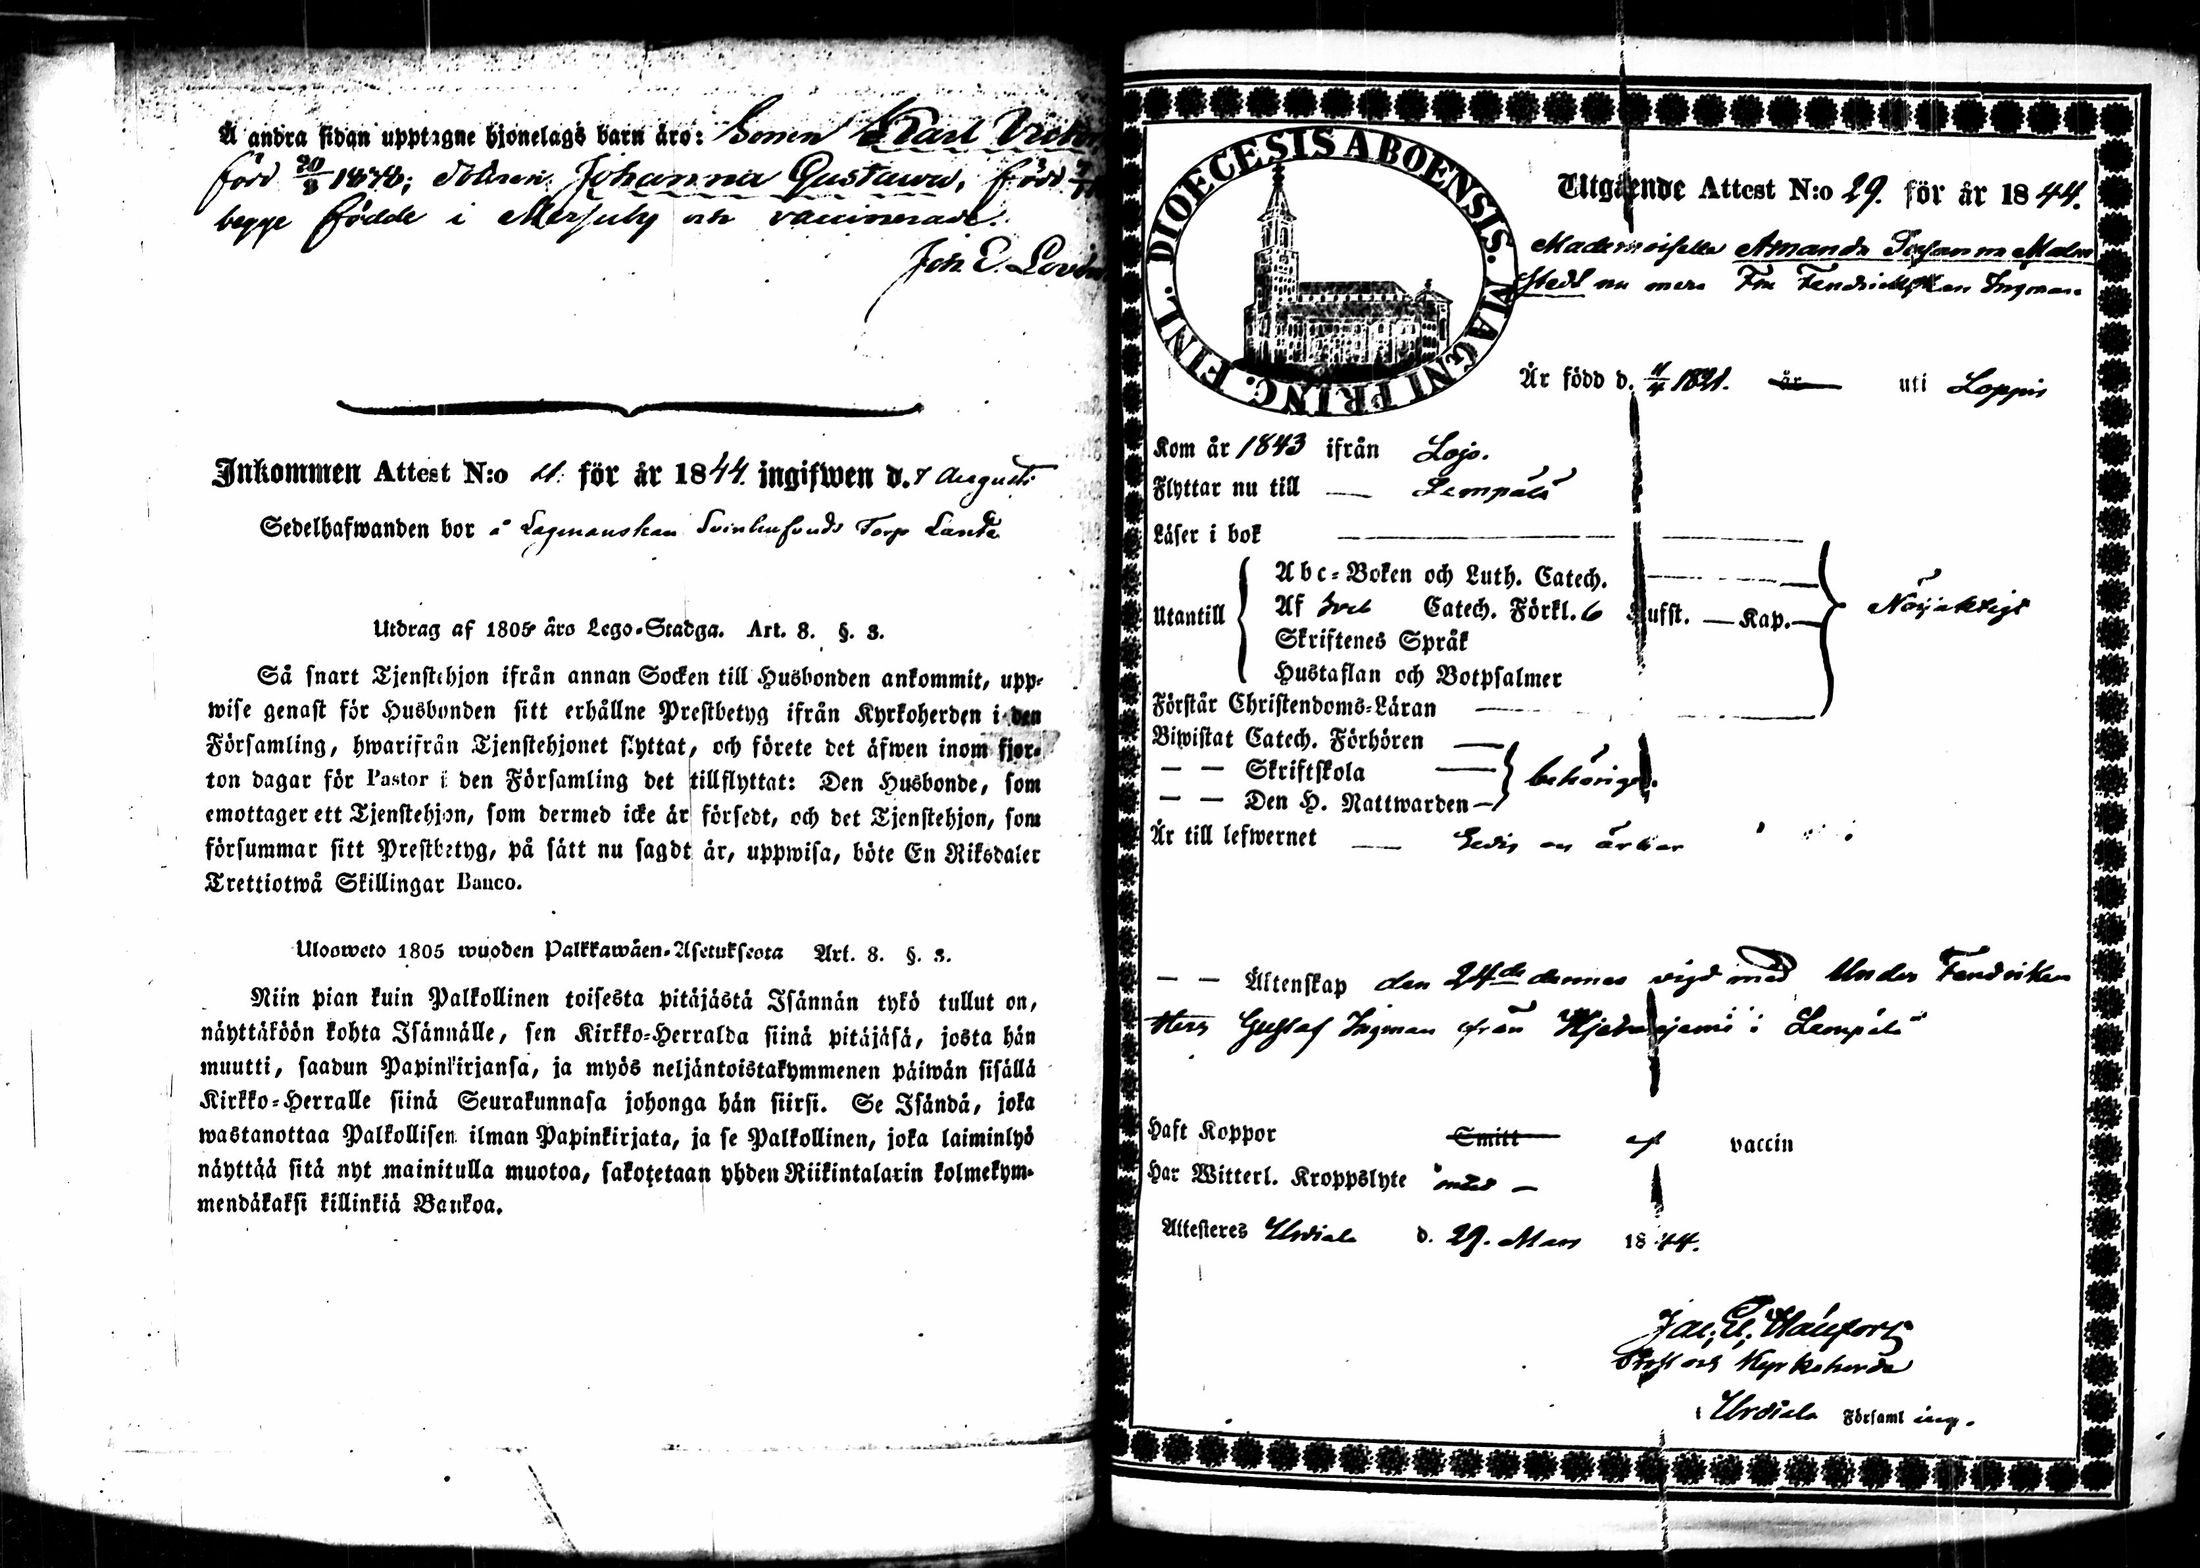 Å andra sidan upptagne hjonelags barn äro: Sonen Karl Victor
född 20/8 1838; dottren Johanna Gustawa, född
begge födde i och vaccinerade.
Joh. E.
Inkommen Attest N:o 21. för år 1844. ingifwen d. 7 Augusti
Sedelhafwanden bor å Lagmanskan Svinhufvuds Torp
Utdrag af 1805 års Lego-Stadga. Art. 8. §. 3.
Så snart Tjenstehjon ifrån annan Socken till Husbonden ankommit, upp-
wise genast för Husbonden sitt erhållne Prestbetyg ifrån Kyrkoherden i den
Församling, hwarifrån Tjenstehjonet flyttat, och förete det äfwen inom fjor-
ton dagar för Pastor i den Församling det tillflyttat: Den Husbonde, som
emottager ett Tjenstehjon, som dermed icke är försedt, och det Tjenstehjon, som
försummar sitt Prestbetyg, på sätt nu sagdt är, uppwisa, böte En Riksdaler
Trettiotwå Skillingar Banco.
Ulosweto 1805 wuoden Palkkawäen-Asetuksesta Art. 8. §. 3.
Niin pian kuin Palkollinen toisesta pitäjästä Isännän tykö tullut on,
näyttäköön kohta Isännälle, sen Kirkko-Herralda siinä pitäjäsä, josta hän
muutti, saadun Papinkirjansa, ja myös neljäntoistakymmenen päiwän sisällä
Kirkko-Herralle siinä Seurakunnasa johonga hän siirsi. Se Isändä, joka
wastanottaa Palkollisen ilman Papinkirjata, ja se Palkollinen, joka laiminlyö
näyttää sitä nyt mainitulla muotoa, sakotetaan yhden Riikintalarin kolmekym-
mendäkaksi killinkiä Bankoa.
DIOECESIS ABOENSIS. MAGNI PRINC. FINL.
Utgående Attest N:o 29. för år 1844.
Mademoiselle Amanda Johanna Malm
stedt nu mera Fru Fendrickskan Ingman
Är född d. 11/4 1821. år uti Loppis
Kom år 1843 ifrån Lojo.
Flyttar nu till — Lempälä
Läser i bok
Abc-Boken och Luth. Catech.
Utantill Af Sveb Catech. Förkl. 6 Hufst. — Kap. — Nöjaktigt
Skriftenes Språk
Hustaflan och Botpsalmer
Förstår Christendoms-Läran
Biwistat Catech. Förhören —
— — Skriftskola — behörigen.
— — Den H. Nattwarden —
Är till lefwernet — Gedig en ärbar
— — Äktenskap den 24de dennes vigd med Under Fendriken
Herr Gustaf Ingman från i Lempälä
Haft Koppor Smitt af vaccin
Har Witterl. Kroppslyte —
Attesteres Urdiala d. 29. Mars 1844.
Jac.
Prost och Kyrkoherde
i Urdiala Församling.